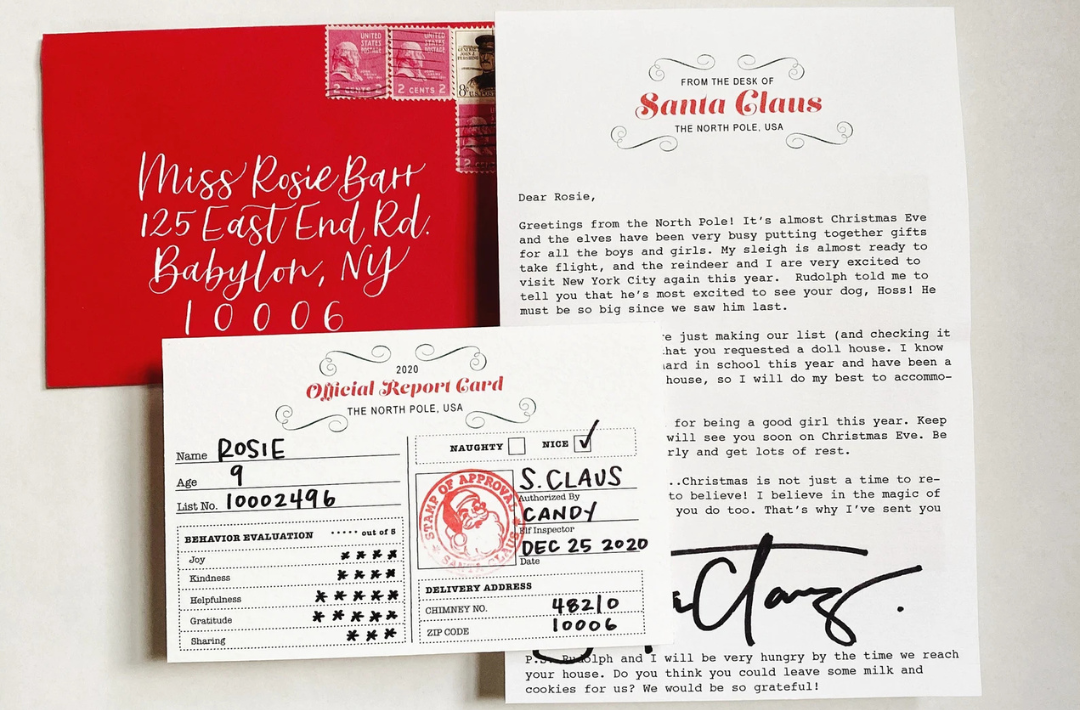 UNITED
STATES
POSTAGE
2 CENTS 2
UNITED
STATES
POSTAGE
2 CENTS 2
8
2 CENTS 2
Miss Rosie Barr
125 East End Rd.
Babylon, NY
10006
FROM THE DESK OF
Santa Claus
THE NORTH POLE, USA
Dear Rosie,
Greetings from the North Pole! It's almost Christmas Eve
and the elves have been very busy putting together gifts
for all the boys and girls. My sleigh is almost ready to
take flight, and the reindeer and I are very excited to
visit New York City again this year. Rudolph told me to
tell you that he's most excited to see your dog, Hoss! He
must be so big since we saw him last.
re just making our list (and checking it
hat you requested a doll house. I know
ard in school this year and have been a
house, so I will do my best to accommo-
for being a good girl this year. Keep
will see you soon on Christmas Eve. Be
rly and get lots of rest.
..Christmas is not just a time to re-
to believe! I believe in the magic of
you do too. That's why I've sent you
Claus.
P.S. Rudolph and I will be very hungry by the time we reach
your house. Do you think you could leave some milk and
cookies for us? We would be so grateful!
2020
Official Report Card
THE NORTH POLE, USA
Name ROSIE
Age 9
List No. 10002496
BEHAVIOR EVALUATION ***** out of 5
Joy ****
Kindness ****
Helpfulness ****
Gratitude *****
Sharing ***
NAUGHTY NICE ✓
STAMP OF APPROVAL
SANTA CLAUS
S. CLAUS
Authorized By
CANDY
Elf Inspector
DEC 25 2020
Date
DELIVERY ADDRESS
CHIMNEY NO. 48210
ZIP CODE 10006